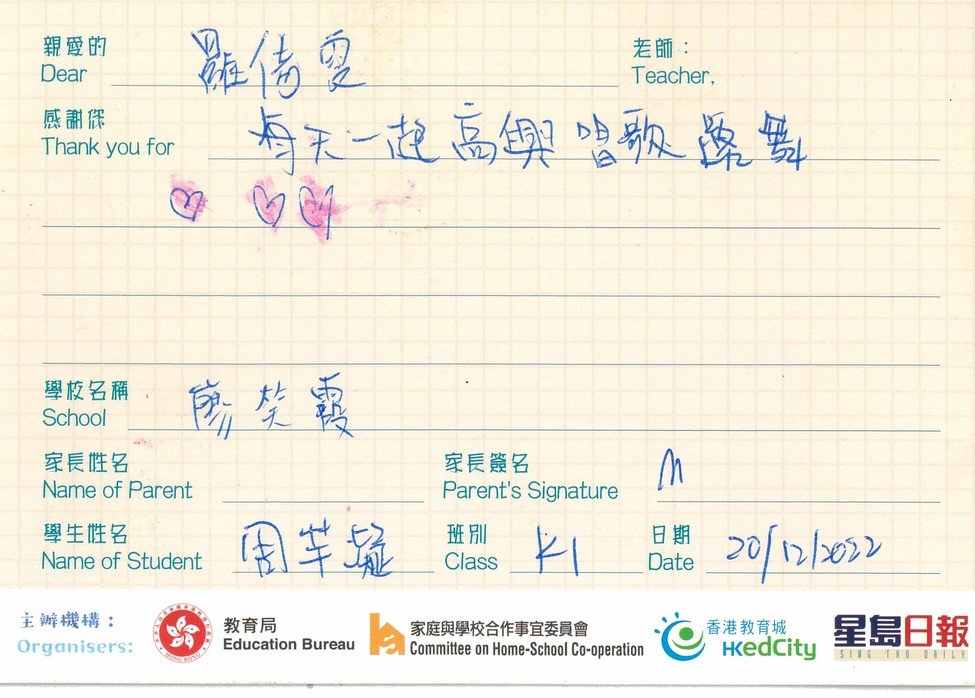 親愛的 羅倩雯 老師：
Dear Teacher,
感謝您 每天一起高興唱歌跳舞
Thank you for
學校名稱 廖笑霞
School
家長姓名 家長簽名
Name of Parent Parent's Signature
學生姓名 周芊 班別 K1 日期 20/12/2022
Name of Student Class Date
主辦機構：
Organisers:
教育局
Education Bureau
家庭與學校合作事宜委員會
Committee on Home-School Co-operation
香港教育城
HKedCity
星島日報
SING TAO DAILY